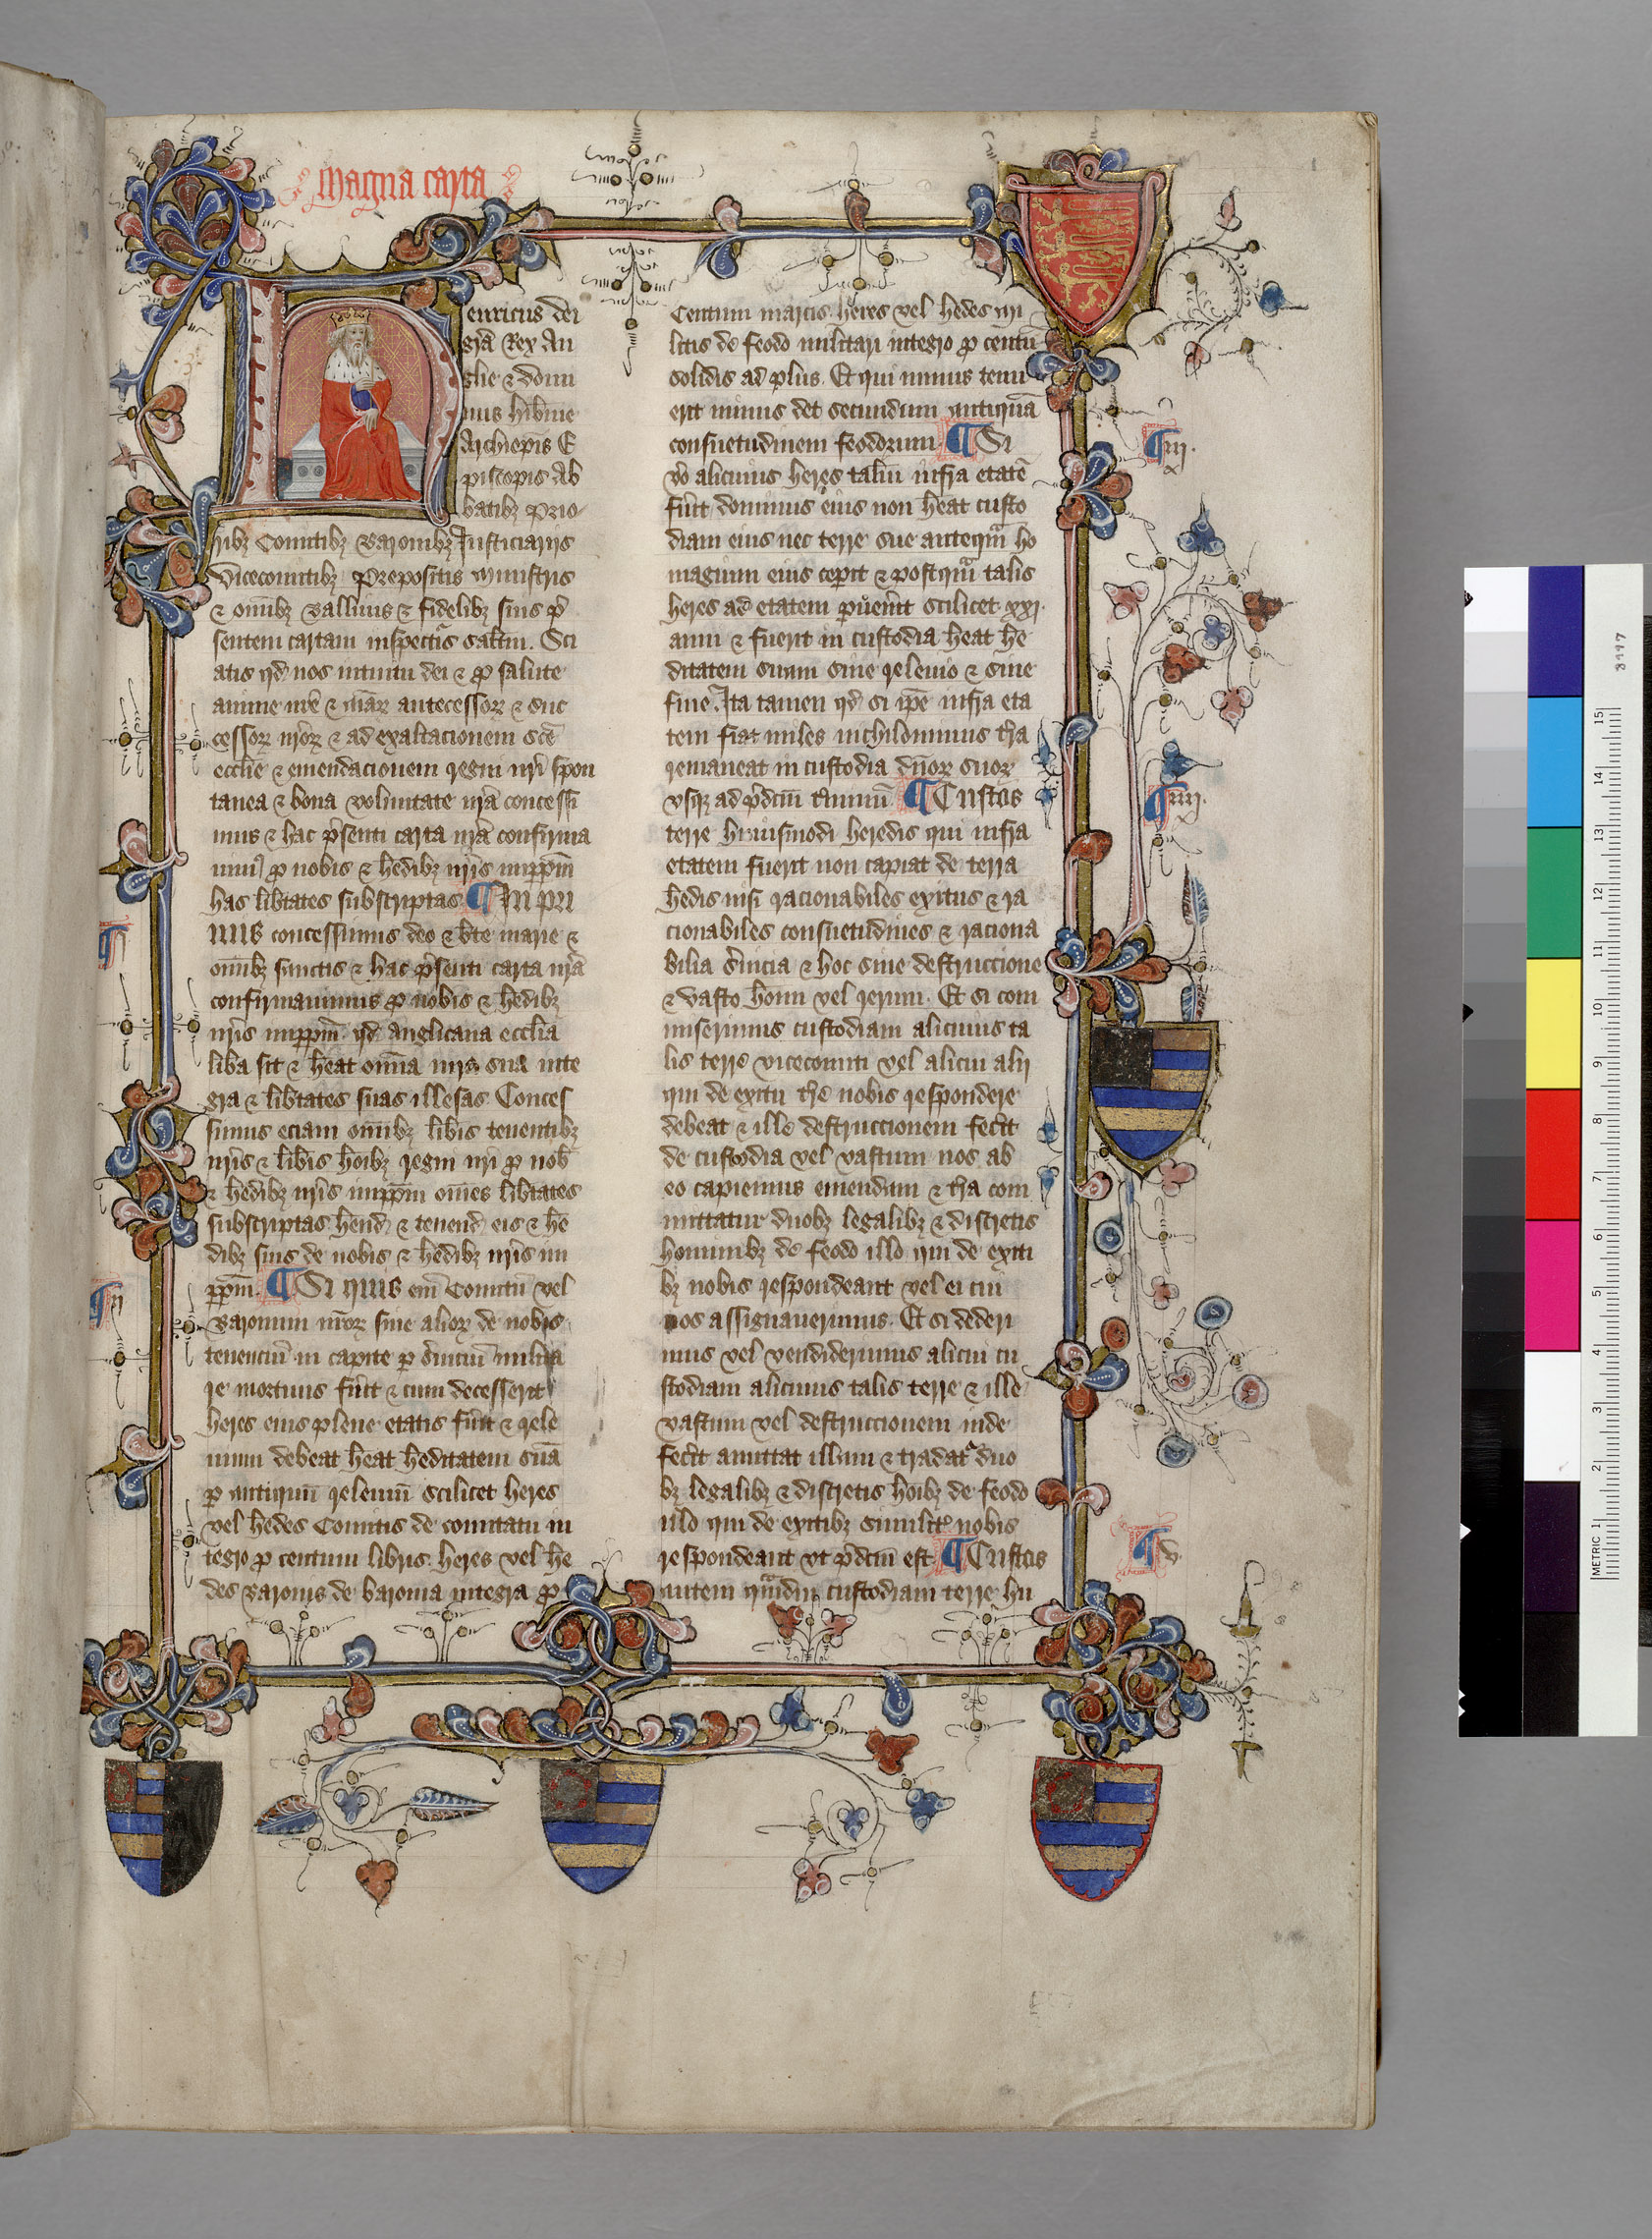 magna carta
Henricus dei
gra Rex An
glie & domi
nus hibnie
Archiepis E
piscopis Ab
batibz prio
ribz Comitibz Baronibz Justiciariis
vicecomitibz Prepositis ministris
& omibz ballivis & fidelibz suis p
sentem cartam inspectis saltm. Sci
atis qd nos intuitu dei & p salute
anime nre & aiar antecessor & suc
cessor nror & ad exaltacionem sce
ecclie & emendacionem regni nri spon
tanea & bona voluntate nra concessi
mus & hac psenti carta nra confirma
vim p nobis & hedibz nris imppm
has libtates subscriptas. ¶ In pri
mis concessimus deo & bte marie &
omibz sanctis & hac psenti carta nra
confirmavimus p nobis & hedibz
nris imppm qd anglicana ecclia
liba sit & heat omia iura sua inte
gra & libtates suas illesas. Conces
simus eciam omibz libis tenentibz
nris & libis hoibz regni nri p nob
& hedibz nris imppm omes libtates
subscriptas hend & tenend eis & he
dibz suis de nobis & hedibz nris im
ppm. ¶ Si quis em Comitu vel
Baronum nror sive alior de nobis
tenenciu in capite p sviciu milita
re mortuus fuit & cum decesserit
heres eius plene etatis fuit & rele
vium debeat heat heditatem sua
p antiquu releviu scilicet heres
vel hedes Comitis de comitatu in
tegro p centum libris. heres vel he
des Baronis de baronia integra p
Centum marcis heres vel hedes mi
litis de feodo militari integro p centu
solidis ad plus. Et qui minus tenu
erit minus det secundum antiqua
consuetudinem feodorum. ¶ Si
vo alicuius heres taliu infra etate
fuit dominus eius non heat custo
diam eius nec terre sue anteqm ho
magium eius cepit & postqm talis
heres ad etatem pvenit scilicet xxj.
anni & fuerit in custodia heat he
ditatem suam sine relevio & sine
fine. Ita tamen qd si ipe infra eta
tem fiat miles nichilominus tra
remaneat in custodia dnor suor
vsqz ad pdcm tminu. ¶ Custos
terre huiusmodi heredis qui infra
etatem fuerit non capiat de terra
hedis nisi racionabiles exitus & ra
cionabiles consuetudines & raciona
bilia svicia & hoc sine destruccione
& vasto hoim vel rerum. Et si com
miserimus custodiam alicuius ta
lis terre vicecomiti vel alicui alii
qui de exitu tre nobis respondere
debeat & ille destruccionem fecit
de custodia vel vastum nos ab
eo capiemus emendam & tra com
mittatur duobz legalibz & discretis
hominibz de feodo illo qui de exiti
bz nobis respondeant vel ei cui
nos assignaverimus. Et si dederi
mus vel vendiderimus alicui cu
stodiam alicuius talis terre & ille
vastum vel destruccionem inde
fecit amittat illam & tradat duo
bz legalibz & discretis hoibz de feodo
illo qui de exitibz similit nobis
respondeant vt pdcm est ¶ Custos
autem qmdiu custodiam terre hu
¶
¶ ij
¶ iij.
¶ iiij.
¶ v.
METRIC 1 2 3 4 5 6 7 8 9 10 11 12 13 14 15